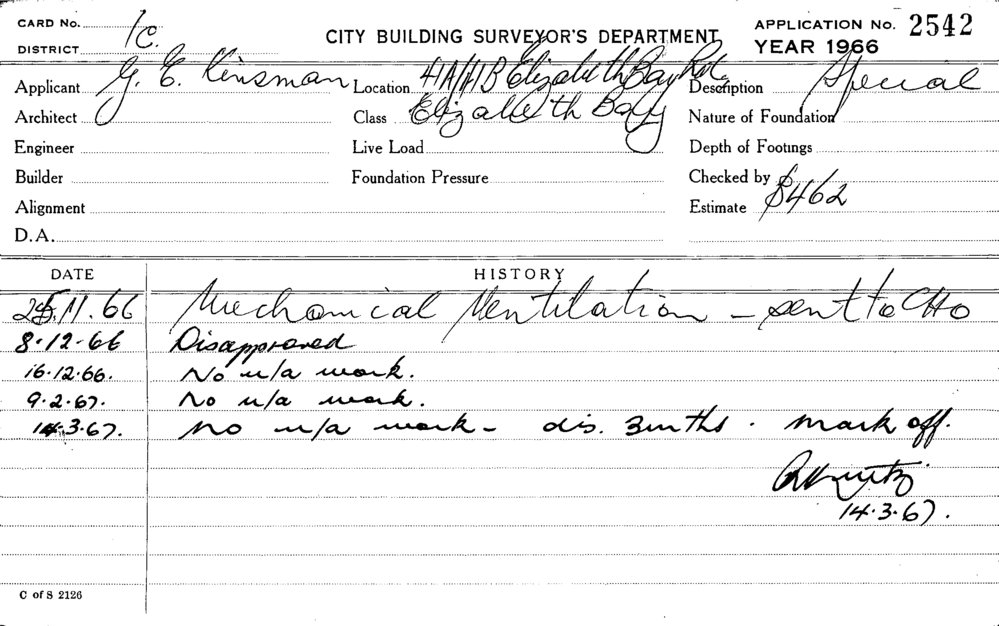 CARD No.
DISTRICT 1C.
CITY BUILDING SURVEYOR'S DEPARTMENT
APPLICATION No. 2542
YEAR 1966
Applicant G. E. Kinsman Location 41A/41B Elizabeth Bay Rd. Description Special
Architect Class Elizabeth Bay Nature of Foundation
Engineer Live Load Depth of Footings
Builder Foundation Pressure Checked by
Alignment Estimate $462
D.A.
DATE HISTORY
25.11.66 Mechanical Ventilation - sent to CHO
8.12.66 Disapproved
16.12.66. No u/a work.
9.2.67. No u/a work.
14.3.67. no u/a work - dis. 3mths. mark off.
14.3.67.
C of S 2126